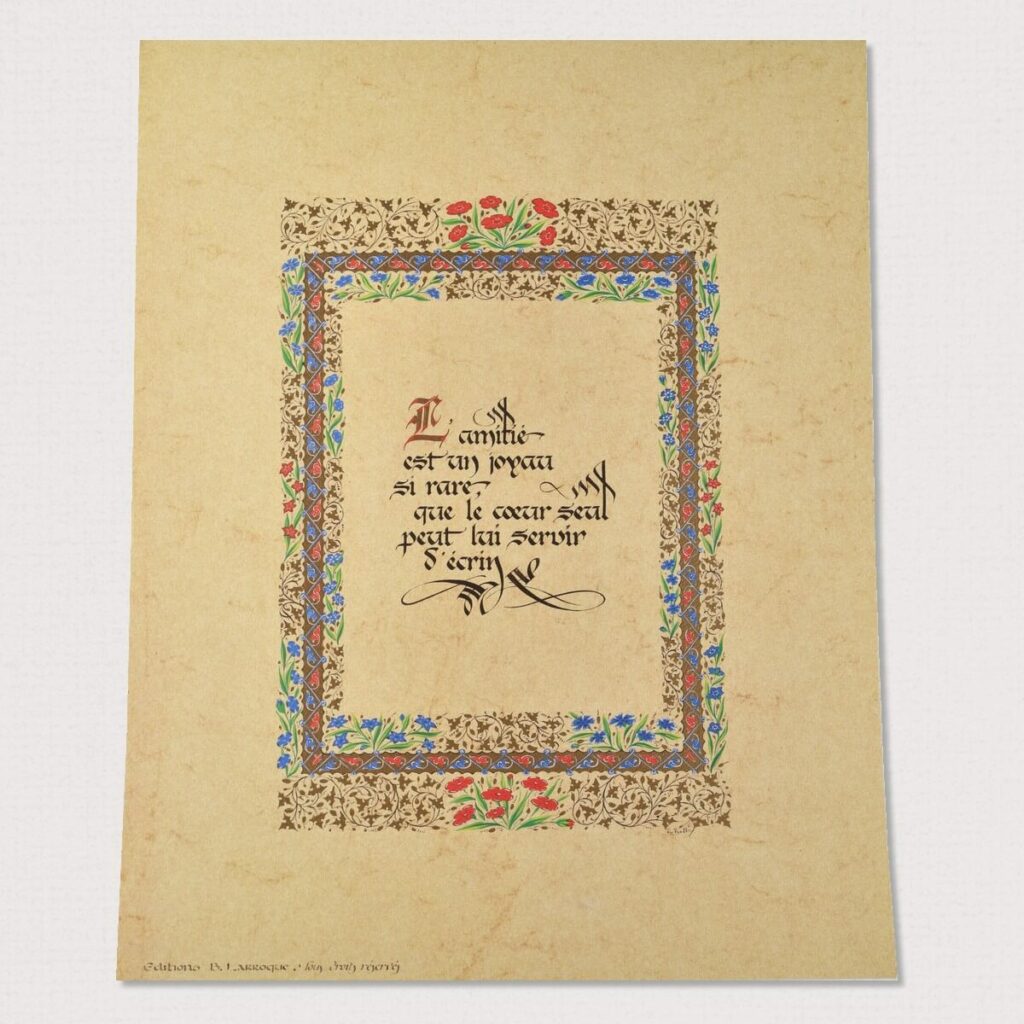 L'amitié
est un joyau
si rare,
que le cœur seul
peut lui servir
d'écrin
Editions B. Larroque. Tous droits réservés